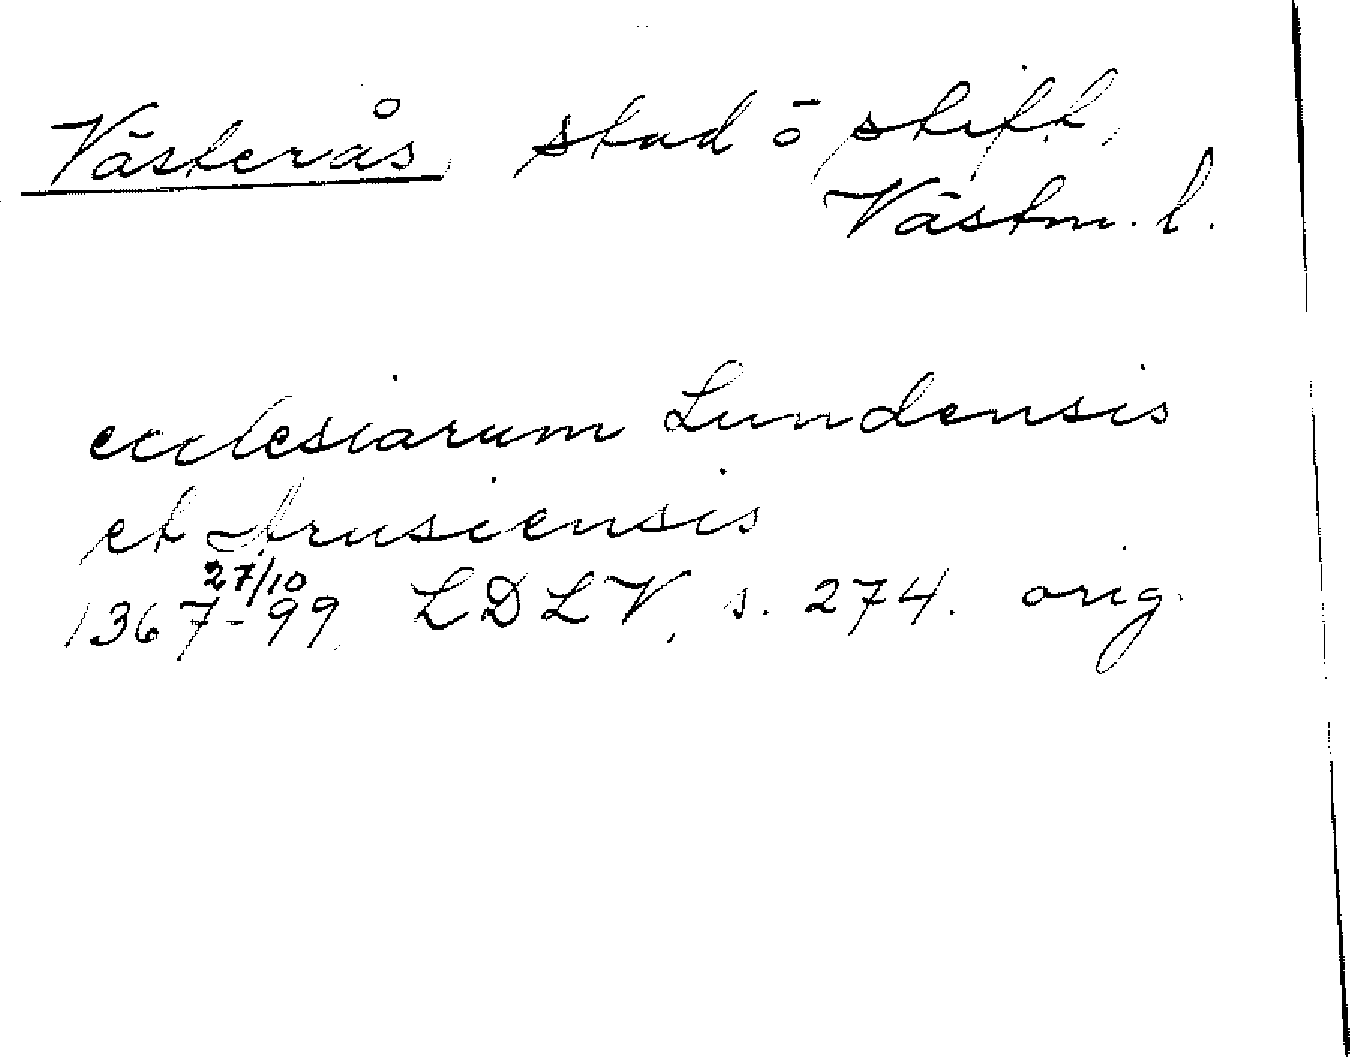 Västerås, stad ō stift,
Västm. l.
ecclesiarum Lundensis
et Arusiensis
27/10
1367-99. LDLV, s. 274. orig.